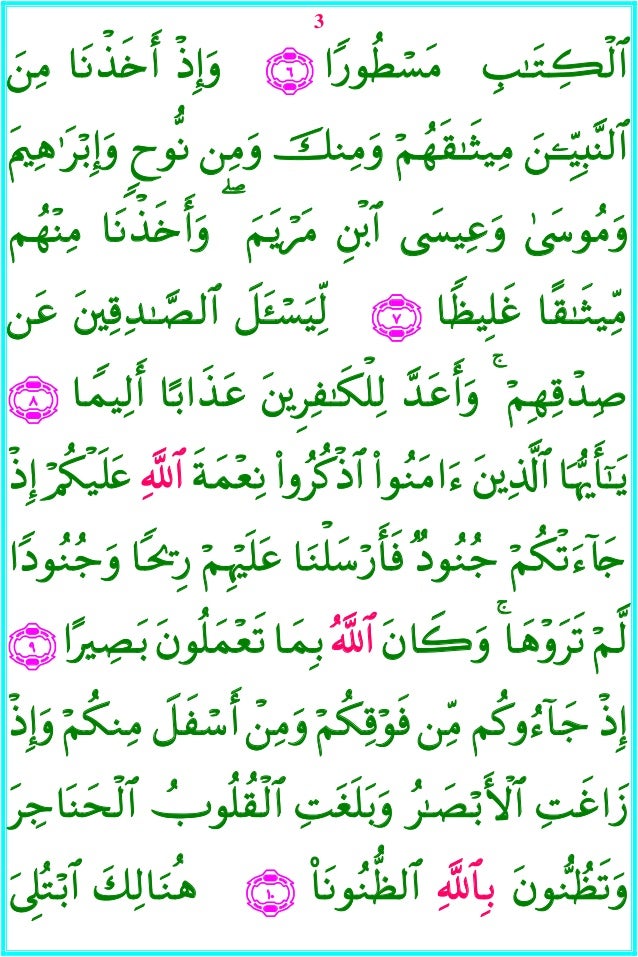 3
ٱلْكِتَـٰبِ مَسْطُورًا ٦ وَإِذْ أَخَذْنَا مِنَ
ٱلنَّبِيِّـۧنَ مِيثَـٰقَهُمْ وَمِنكَ وَمِن نُّوحٍ وَإِبْرَٰهِيمَ
وَمُوسَىٰ وَعِيسَى ٱبْنِ مَرْيَمَ ۖ وَأَخَذْنَا مِنْهُم
مِّيثَـٰقًا غَلِيظًا ٧ لِّيَسْـَٔلَ ٱلصَّـٰدِقِينَ عَن
صِدْقِهِمْ ۚ وَأَعَدَّ لِلْكَـٰفِرِينَ عَذَابًا أَلِيمًا ٨
يَـٰٓأَيُّهَا ٱلَّذِينَ ءَامَنُوا۟ ٱذْكُرُوا۟ نِعْمَةَ ٱللَّهِ عَلَيْكُمْ إِذْ
جَآءَتْكُمْ جُنُودٌ فَأَرْسَلْنَا عَلَيْهِمْ رِيحًا وَجُنُودًا
لَّمْ تَرَوْهَا ۚ وَكَانَ ٱللَّهُ بِمَا تَعْمَلُونَ بَصِيرًا ٩
إِذْ جَآءُوكُم مِّن فَوْقِكُمْ وَمِنْ أَسْفَلَ مِنكُمْ وَإِذْ
زَاغَتِ ٱلْأَبْصَـٰرُ وَبَلَغَتِ ٱلْقُلُوبُ ٱلْحَنَاجِرَ
وَتَظُنُّونَ بِٱللَّهِ ٱلظُّنُونَا۠ ١٠ هُنَالِكَ ٱبْتُلِىَ